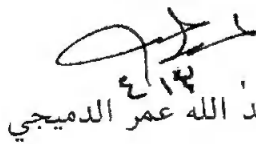 ٤١٣
د الله عمر الدميجي